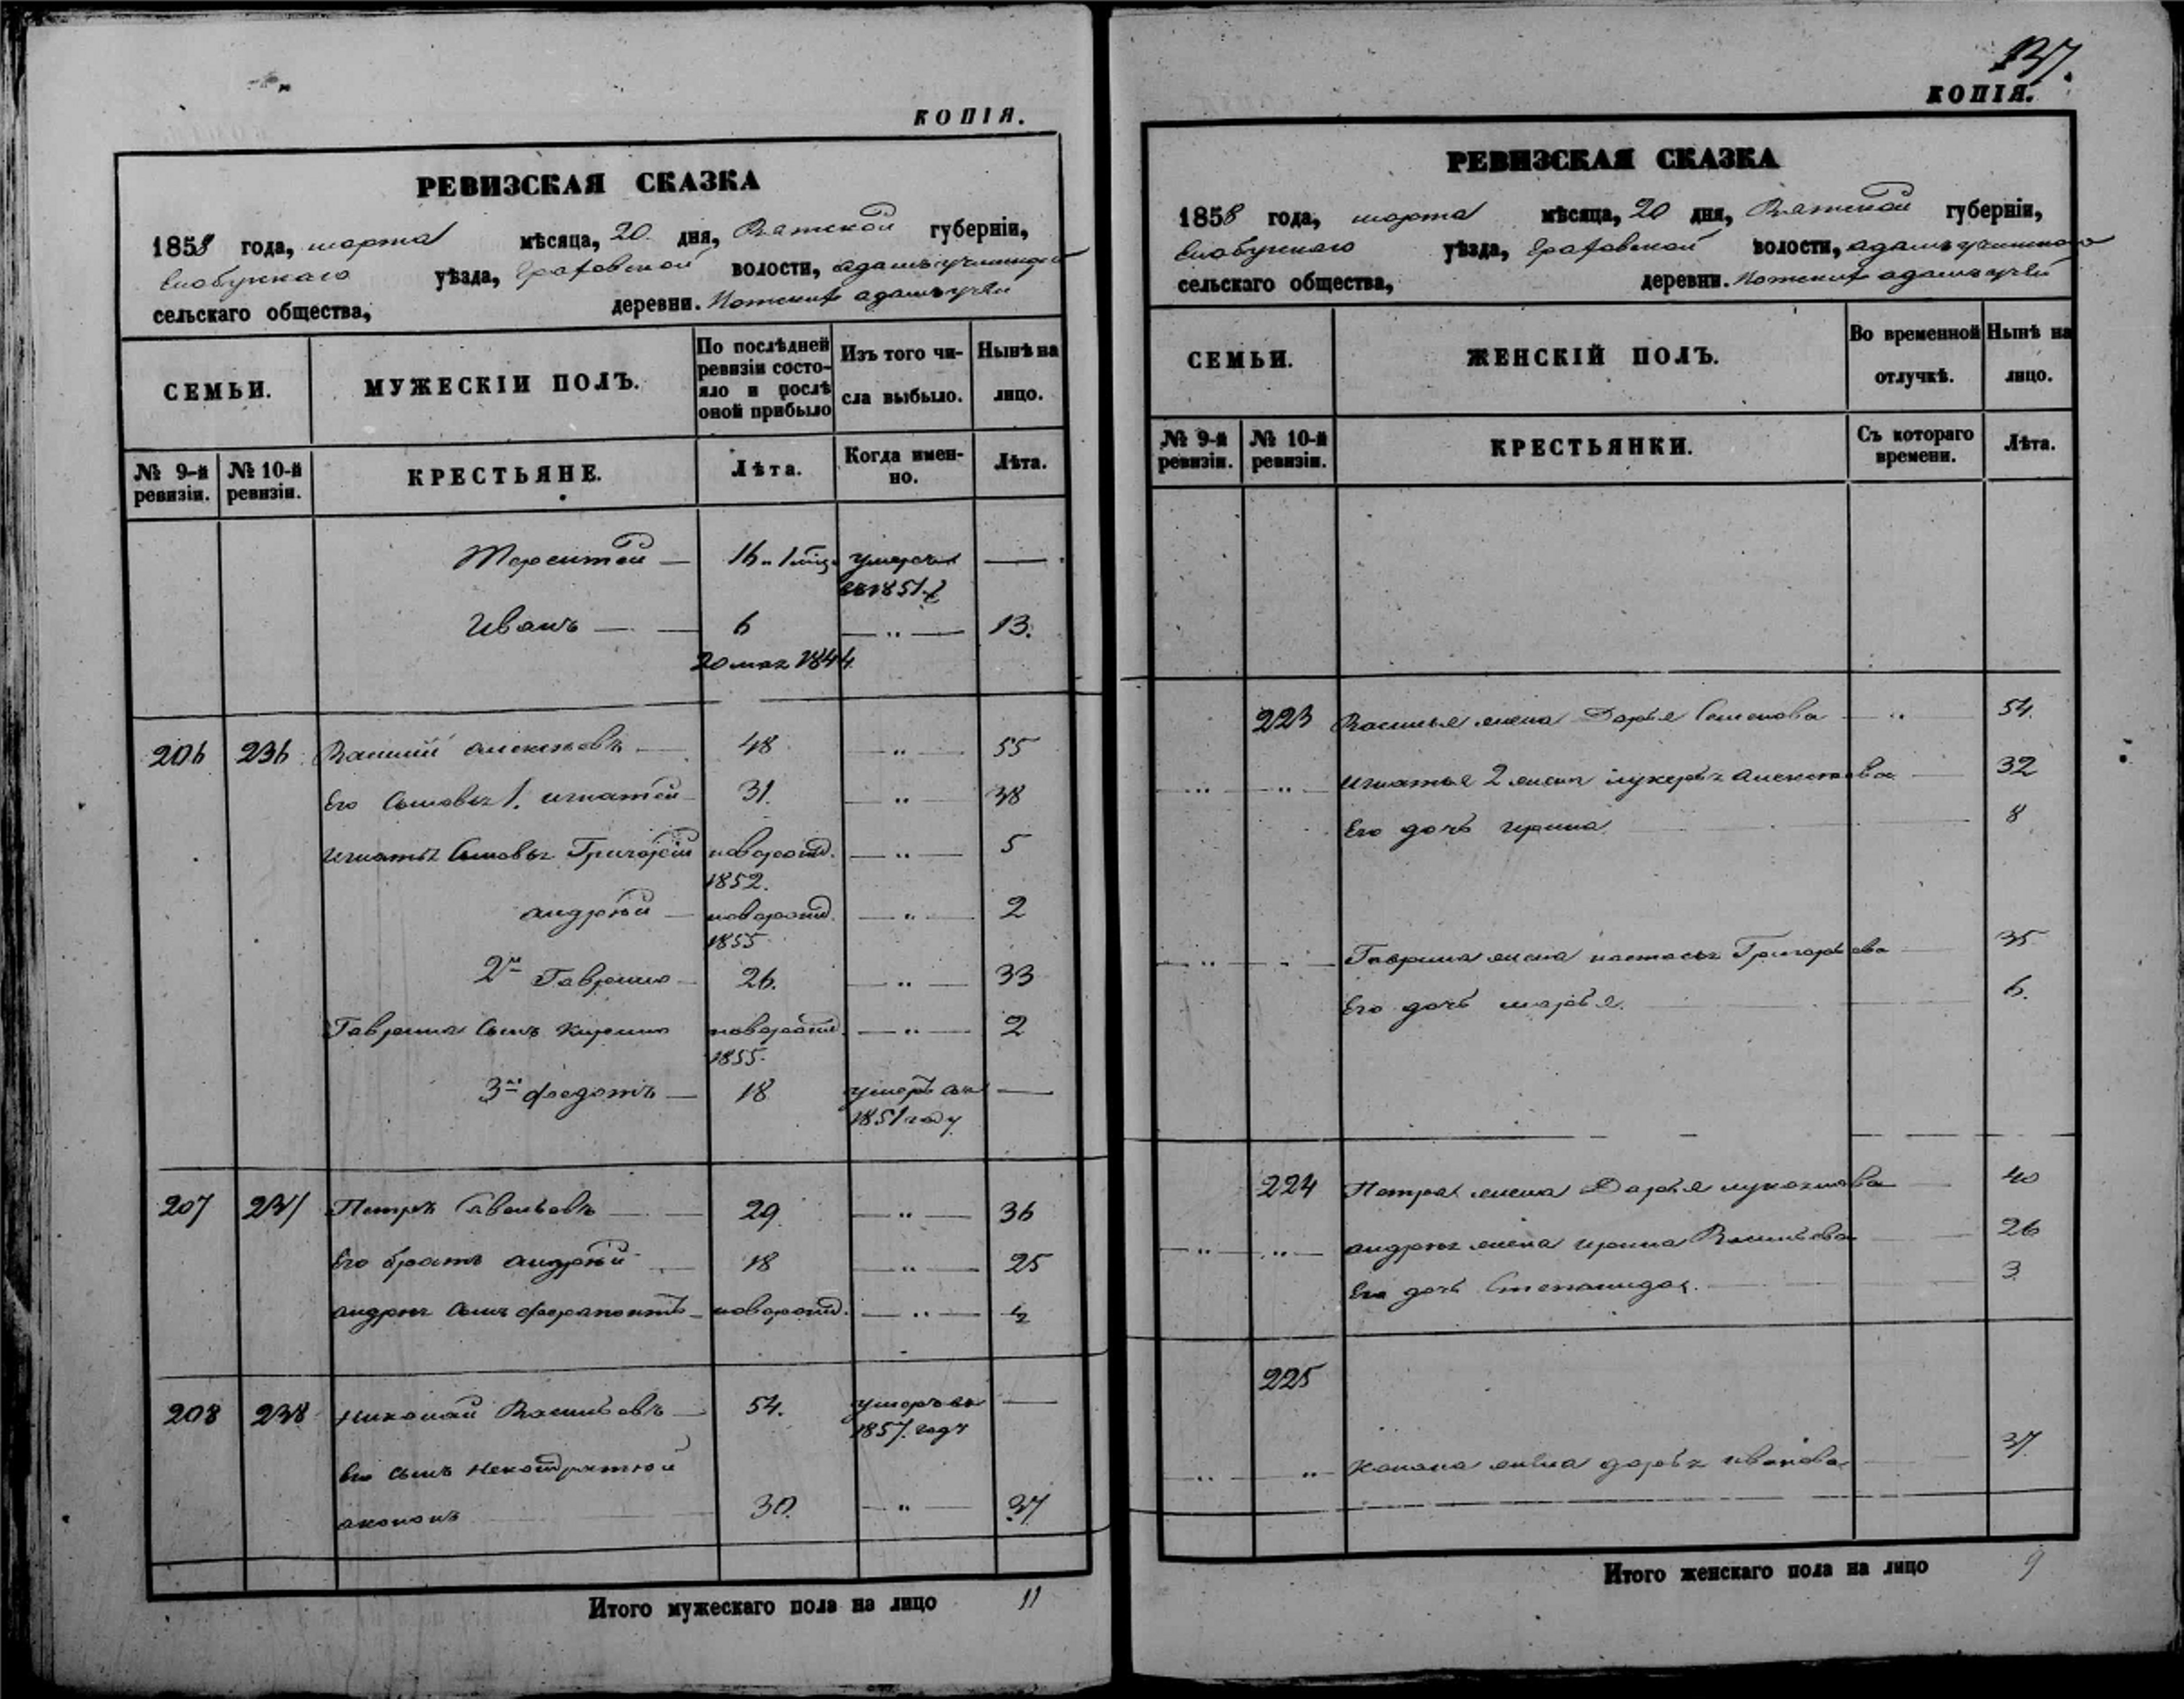 КОПІЯ.
РЕВИЗСКАЯ СКАЗКА
1858 года, марта мѣсяца, 20 дня, Вятской губерніи,
Елабужскаго уѣзда, Граховской волости,
сельскаго общества, деревни.
СЕМЬИ.
МУЖЕСКІЙ ПОЛЪ.
По послѣдней ревизіи состояло и послѣ оной прибыло
Изъ того числа выбыло.
Нынѣ на лицо.
№ 9-й ревизіи.
№ 10-й ревизіи.
КРЕСТЬЯНЕ.
Лѣта.
Когда именно.
Лѣта.
Терентей — 16 умеръ —
въ 1851 г
Иванъ — — 6 — " — 13.
20 мая 1844.
206 236 Василий Алексѣевъ — 48 — " — 55
Его Сыновья 1. Игнатей 31. — " — 38
Игнатья Сыновья Григорей новорожд. — " — 5
1852.
Андрей — новорожд. — " — 2
1855
2й Гаврило — 26. — " — 33
Гаврила Сынъ Кирило новорожд. — " — 2
1855.
3й Федотъ — 18 умеръ въ —
1851 году
207 237 Петръ Савельевъ — 29 — " — 36
Его братъ Андрей 18 — " — 25
Андрея Сынъ Ферапонтъ — новорожд. — " — ½
208 238 Николай Васильевъ — 54. умеръ въ —
1857 году
Его сынъ
30. — " — 37
Итого мужескаго пола на лицо 11
137.
КОПІЯ.
РЕВИЗСКАЯ СКАЗКА
1858 года, марта мѣсяца, 20 дня, Вятской губерніи,
Елабужскаго уѣзда, Граховской волости,
сельскаго общества, деревни.
СЕМЬИ.
ЖЕНСКІЙ ПОЛЪ.
Во временной отлучкѣ.
Нынѣ на лицо.
№ 9-й ревизіи.
№ 10-й ревизіи.
КРЕСТЬЯНКИ.
Съ котораго времени.
Лѣта.
223 Василья жена Дарья Семенова — " 54.
— " — Игнатья 2 жена Лукерья Алексѣева 32
Его дочь Ирина 8
— " — Гаврила жена Настасья Григорьева 35
Его дочь Марья. 6.
224 Петра жена Дарья 40
— " — Андрея жена Ирина Васильева 26
Его дочь Степанида. 3
225
— " — жена Дарья Иванова 37
Итого женскаго пола на лицо 9